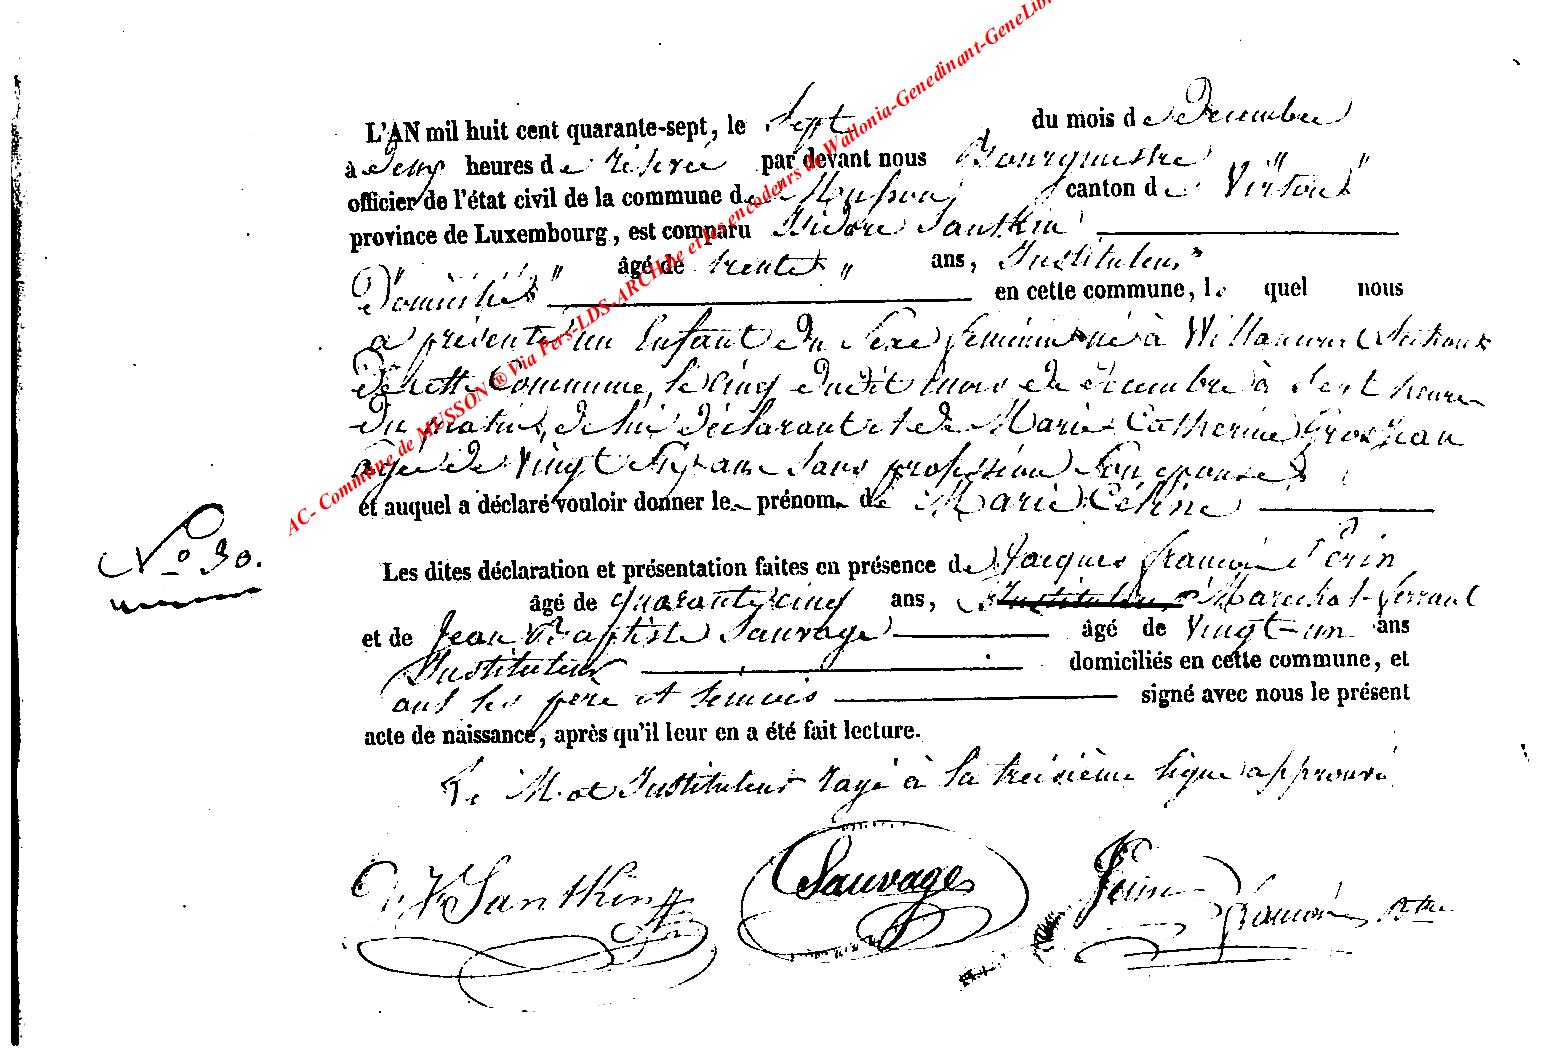 AC- Commune de MUSSON ® Via Pers-LDS-ARCHive et les encodeurs de Wallonia-Genedinant-GeneLibr
L'AN mil huit cent quarante-sept, le Sept du mois de Decembre
à Deux heures de relevée par devant nous Bourgmestre
officier de l'état civil de la commune de Musson canton de Virton
province de Luxembourg, est comparu Isidore Santkin
âgé de trente ans, Instituteur
Domicilié en cette commune, le quel nous
a présenté un Enfant du Sexe feminin né à Willancourt Section
De cette Commune, le cinq dudit mois de décembre à Sept heures
Du matin, de lui déclarant et de Marie Catherine Grosjean
agée de Vingt Six ans Sans profession Son epouse
et auquel a déclaré vouloir donner le prénom de Marie Céline
N° 30.
Les dites déclaration et présentation faites en présence de Jacques françois Perin
âgé de quarante cinq ans, Instituteur Maréchal-ferrant
et de Jean Baptiste Sauvage âgé de Vingt-un ans
Instituteur domiciliés en cette commune, et
ont les père et temoins signé avec nous le présent
acte de naissance, après qu'il leur en a été fait lecture.
Le Mot Instituteur rayé à la treisième ligne approuvé
Santkin Sauvage